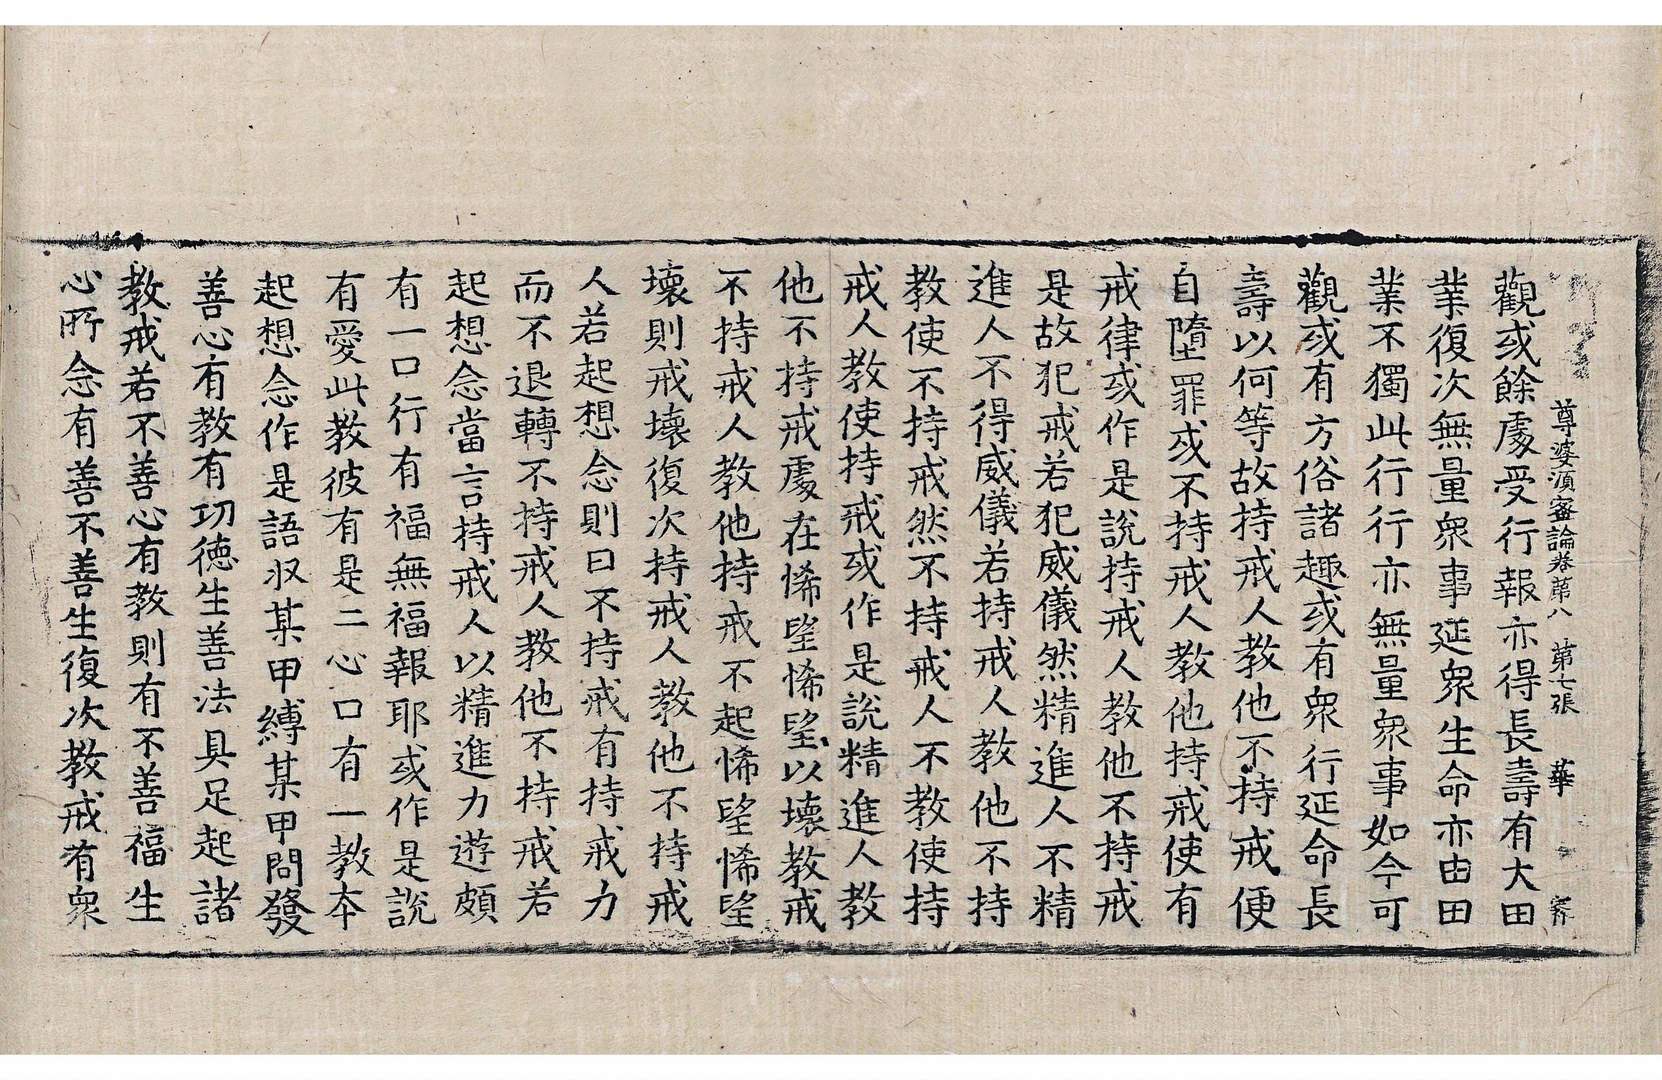 尊婆湏蜜論卷苐八　第七張　華
觀或餘處受行報亦得長壽有大田
業復次無量衆事延衆生命亦由田
業不獨此行行亦無量衆事如今可
觀或有方俗諸趣或有衆行延命長
壽以何等故持戒人教他不持戒便
自墮罪或不持戒人教他持戒使有
戒律或作是說持戒人教他不持戒
是故犯戒若犯威儀然精進人不精
進人不得威儀若持戒人教他不持
教使不持戒然不持戒人不教使持
戒人教使持戒或作是說精進人教
他不持戒處在悕望悕望以壊教戒
不持戒人教他持戒不起悕望悕望
壊則戒壊復次持戒人教他不持戒
人若起想念則曰不持戒有持戒力
而不退轉不持戒人教他不持戒若
起想念當言持戒人以精進力遊頗
有一口行有福無福報耶或作是說
有愛此教彼有是二心口有一教本
起想念作是語収某甲縛某甲問發
善心有教有功德生善法具足起諸
教戒若不善心有教則有不善福生
心所念有善不善生復次教戒有衆